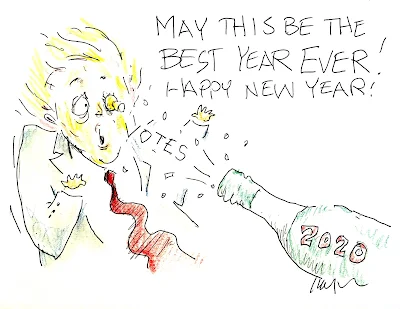 MAY THIS BE THE
BEST YEAR EVER!
HAPPY NEW YEAR!
VOTES
2020